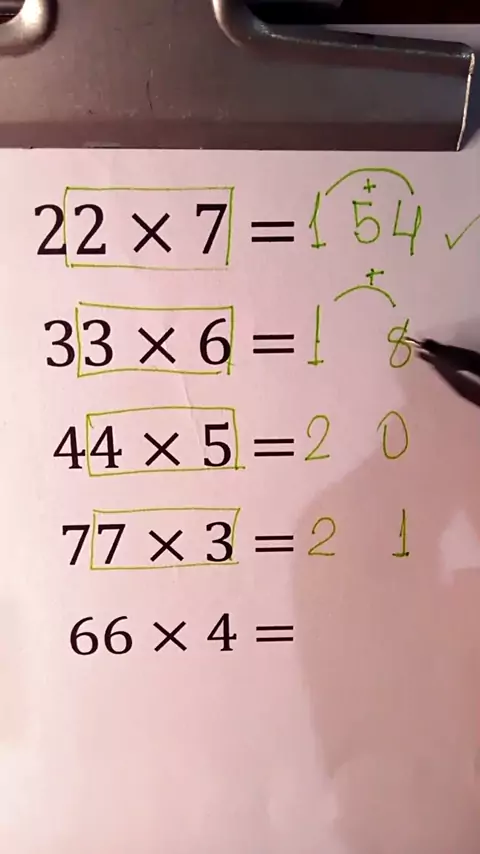 +
22 × 7 = 154 ✓
+
33 × 6 = 1 8
44 × 5 = 2 0
77 × 3 = 2 1
66 × 4 =